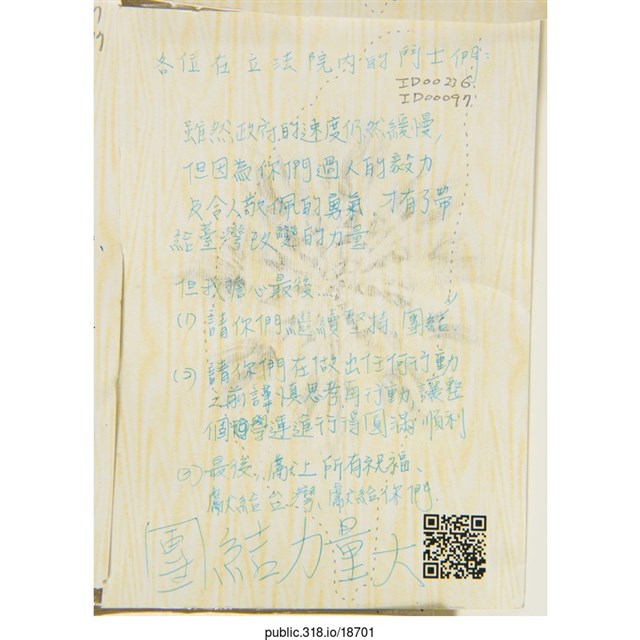 各位在立法院內的鬥士們:
ID00236.
ID00097.
雖然政府的速度仍然緩慢,
但因為你們過人的毅力
及令人敬佩的勇氣 才有了帶
給臺灣改變的力量
但我擔心最後...
(1) 請你們繼續堅持、團結.
(2) 請你們在做出任何行動
之前謹慎思考再行動,讓整
個學運進行得圓滿 順利
(3) 最後,獻上所有祝福、
獻給台灣、獻給你們.
團結力量大
public.318.io/18701